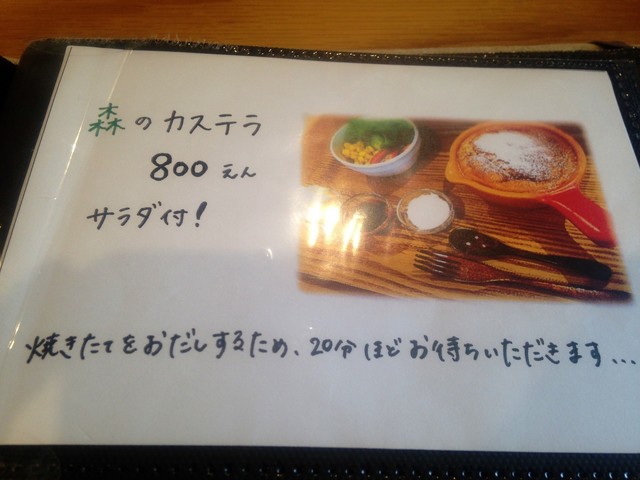 森のカステラ
800えん
サラダ付!
焼きたてをおだしするため、20分ほどお待ちいただきます...